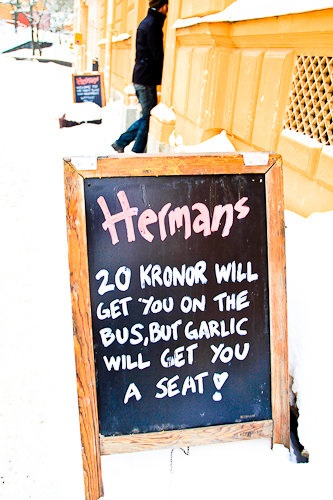 Hermans
Hermans
20 KRONOR WILL
GET YOU ON THE
BUS, BUT GARLIC
WILL GET YOU
A SEAT!